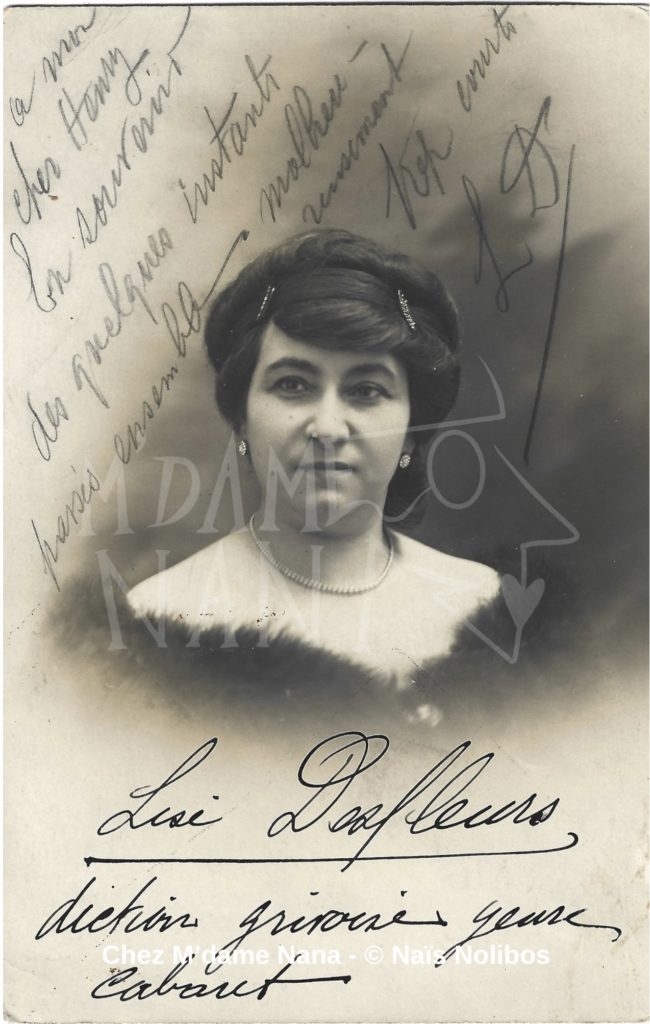 a mon
cher Henry
En souvenir
des quelques instants
passés ensemble malheu-
reusement
trop courts
L D
M'DAME
NANA
Lise Desfleurs
diction grivoise genre
Chez M'dame Nana - © Naïs Nolibos
cabaret